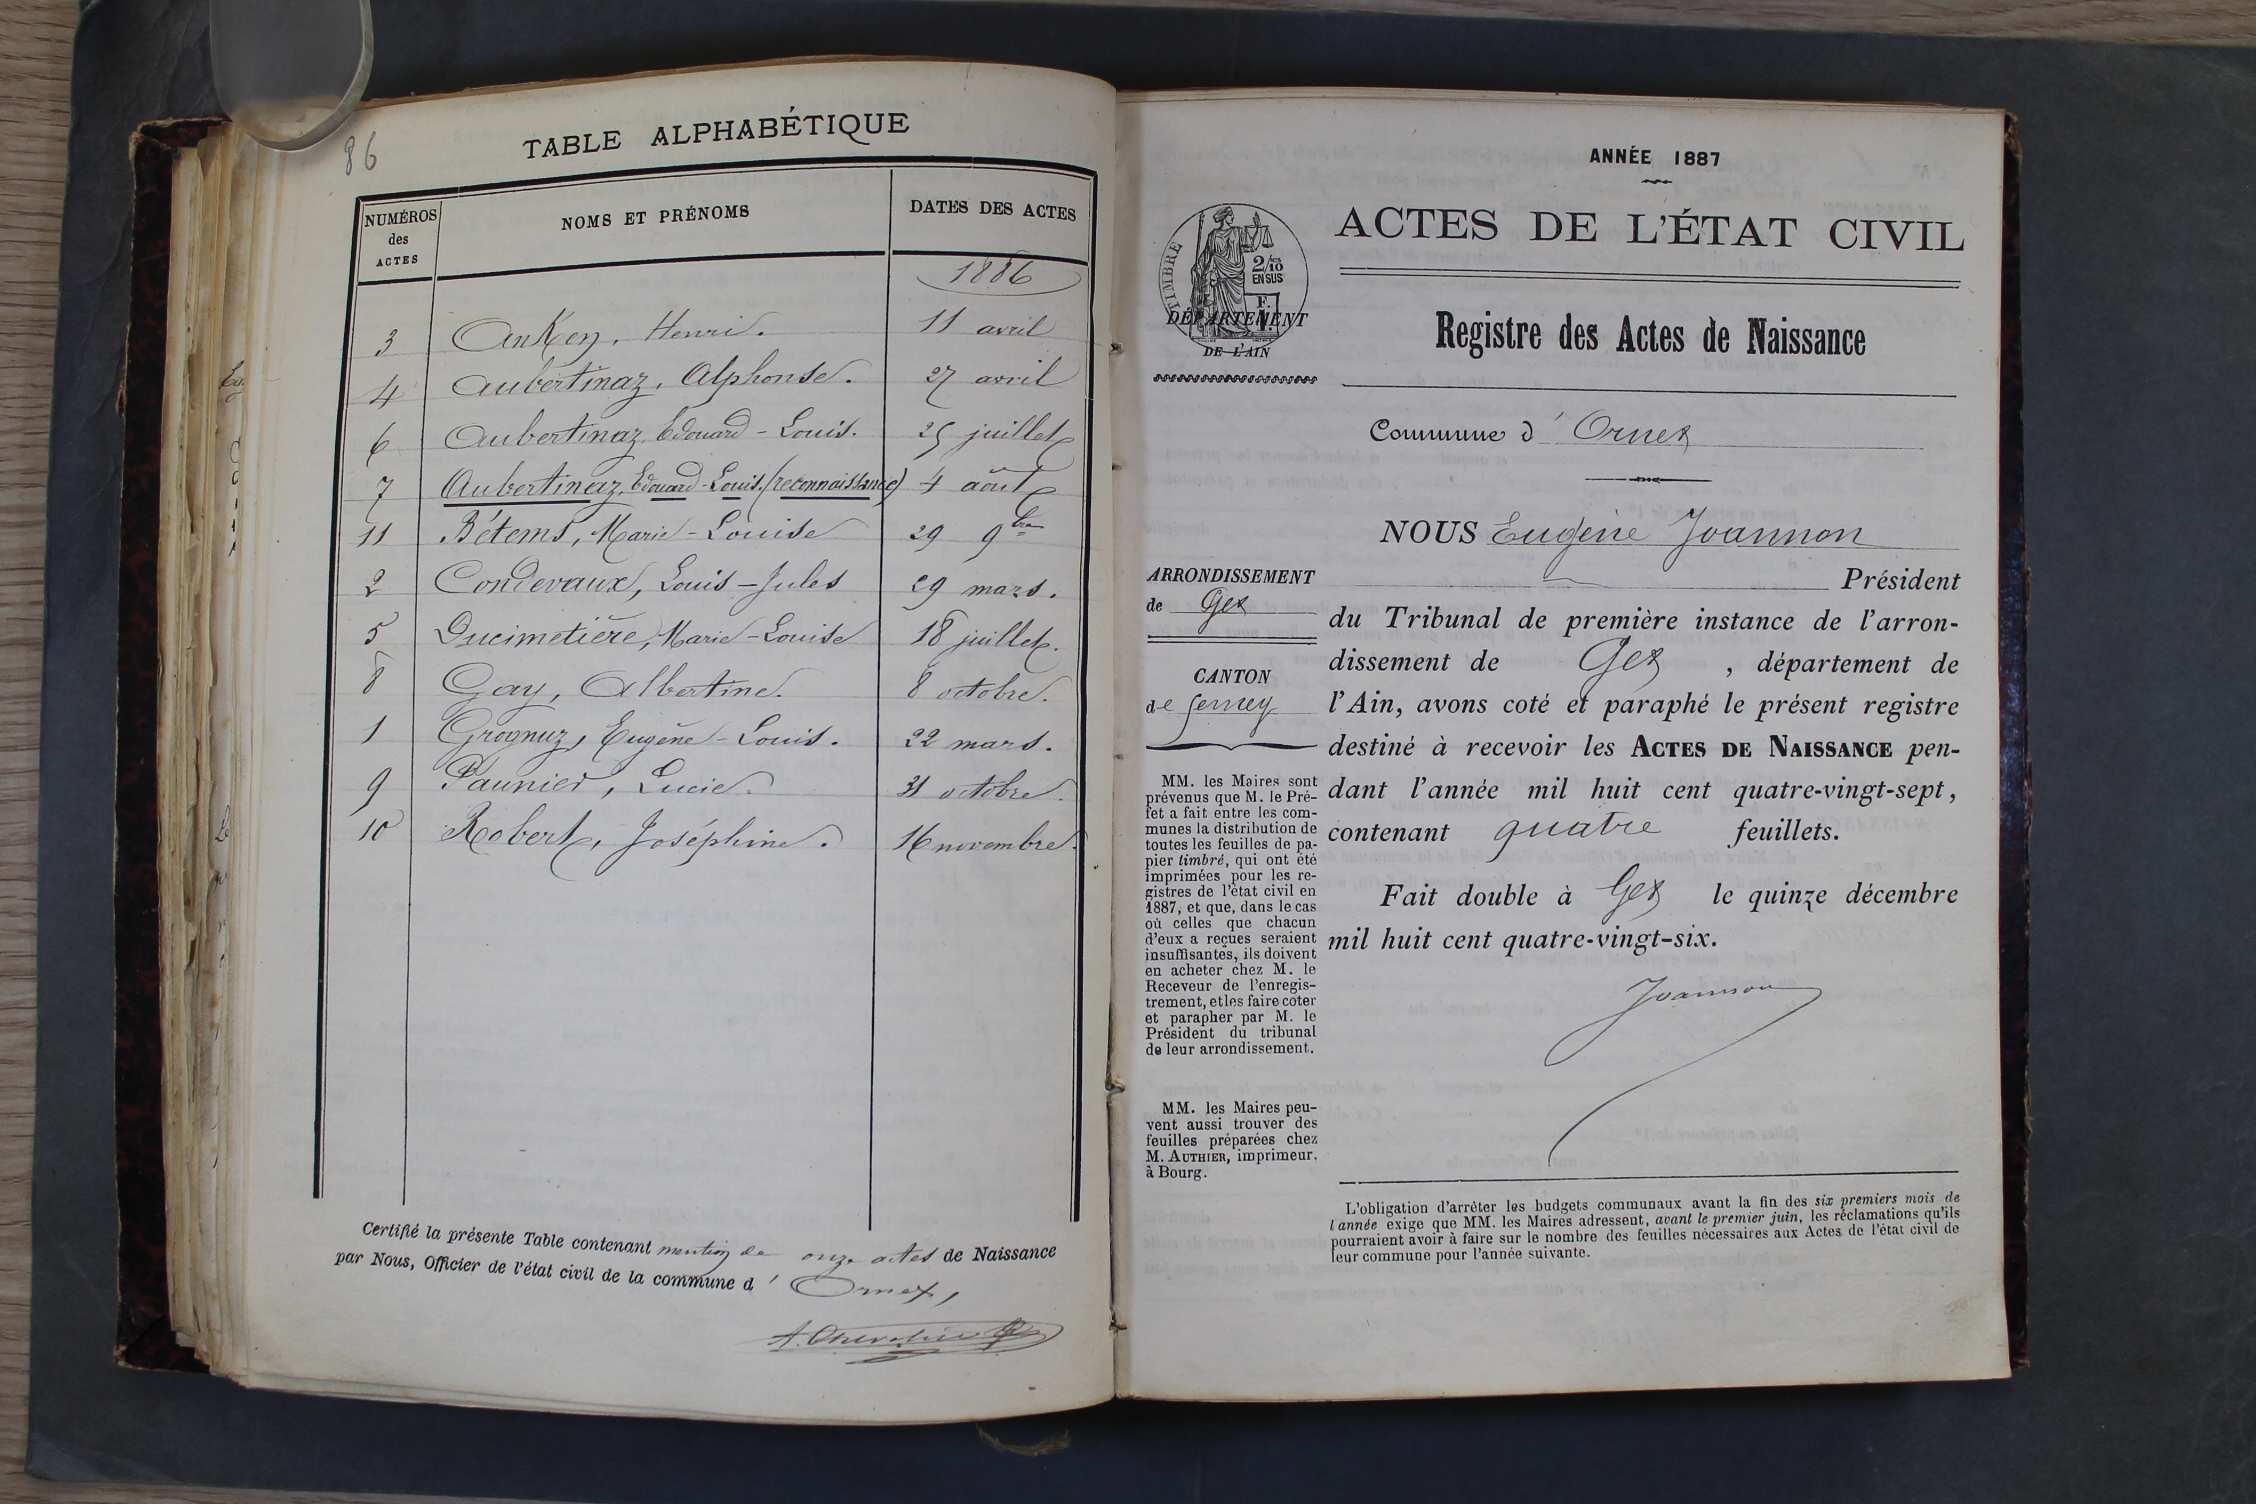 86
TABLE ALPHABÉTIQUE
NUMÉROS
des
ACTES
NOMS ET PRÉNOMS
DATES DES ACTES
1886
3 Ankey, Henri. 11 avril
4 Aubertinaz, Alphonse. 27 avril
6 Aubertinaz, Edouard-Louis. 25 juillet
7 Aubertinaz, Edouard-Louis. (reconnaissance) 4 août
11 Bétems, Marie-Louise 29 9bre
2 Condevaux, Louis-Jules 29 mars.
5 Ducimetière, Marie-Louise 18 juillet.
8 Gay, Albertine. 8 octobre.
1 Grognuz, Eugène-Louis. 22 mars.
9 Paunier, Lucie. 31 octobre.
10 Robert, Joséphine. 16 novembre.
Certifié la présente Table contenant mention de onze actes de Naissance
par Nous, Officier de l'état civil de la commune d' Ornex,
ANNÉE 1887
ACTES DE L'ÉTAT CIVIL
TIMBRE
2/10
EN SUS
DÉPARTEMENT
DE L'AIN
Registre des Actes de Naissance
Commune d' Ornex
NOUS Eugène Joannon
Président
du Tribunal de première instance de l'arron-
dissement de Gex, département de
l'Ain, avons coté et paraphé le présent registre
destiné à recevoir les ACTES DE NAISSANCE pen-
dant l'année mil huit cent quatre-vingt-sept,
contenant quatre feuillets.
Fait double à Gex le quinze décembre
mil huit cent quatre-vingt-six.
Joannon
ARRONDISSEMENT
de Gex
CANTON
de Ferney
MM. les Maires sont
prévenus que M. le Pré-
fet a fait entre les com-
munes la distribution de
toutes les feuilles de pa-
pier timbré, qui ont été
imprimées pour les re-
gistres de l'état civil en
1887, et que, dans le cas
où celles que chacun
d'eux a reçues seraient
insuffisantes, ils doivent
en acheter chez M. le
Receveur de l'enregis-
trement, et les faire coter
et parapher par M. le
Président du tribunal
de leur arrondissement.
MM. les Maires peu-
vent aussi trouver des
feuilles préparées chez
M. AUTHIER, imprimeur,
à Bourg.
L'obligation d'arrêter les budgets communaux avant la fin des six premiers mois de
l'année exige que MM. les Maires adressent, avant le premier juin, les réclamations qu'ils
pourraient avoir à faire sur le nombre des feuilles nécessaires aux Actes de l'état civil de
leur commune pour l'année suivante.